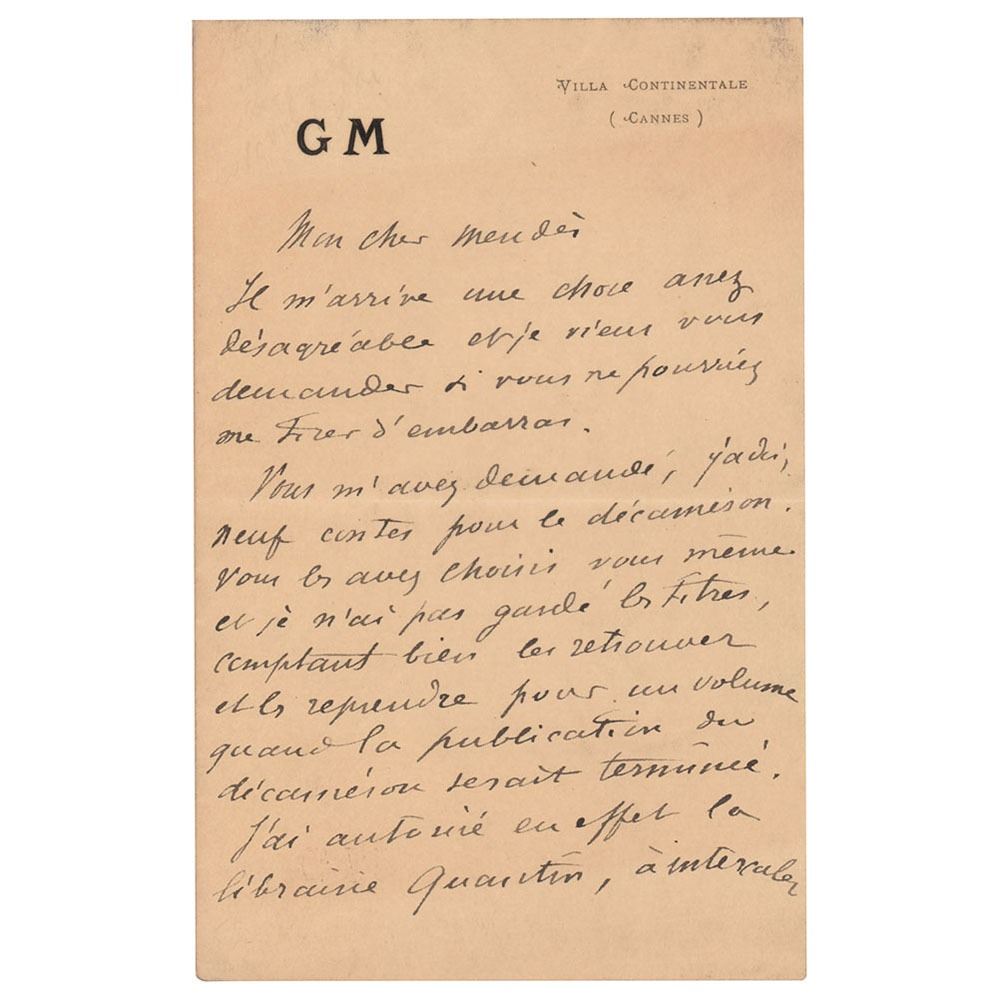 VILLA CONTINENTALE
( CANNES )
GM
Mon cher Mendès
Il m'arrive une chose assez
désagréable et je viens vous
demander si vous ne pourriez
me tirer d'embarras.
Vous m'avez demandé, jadis,
neuf contes pour le décaméron.
Vous les avez choisis vous même
et je n'ai pas gardé les titres,
comptant bien les retrouver
et les reprendre pour un volume
quand la publication du
décaméron serait terminée.
J'ai autorisé en effet la
librairie Quantin, à intercaler